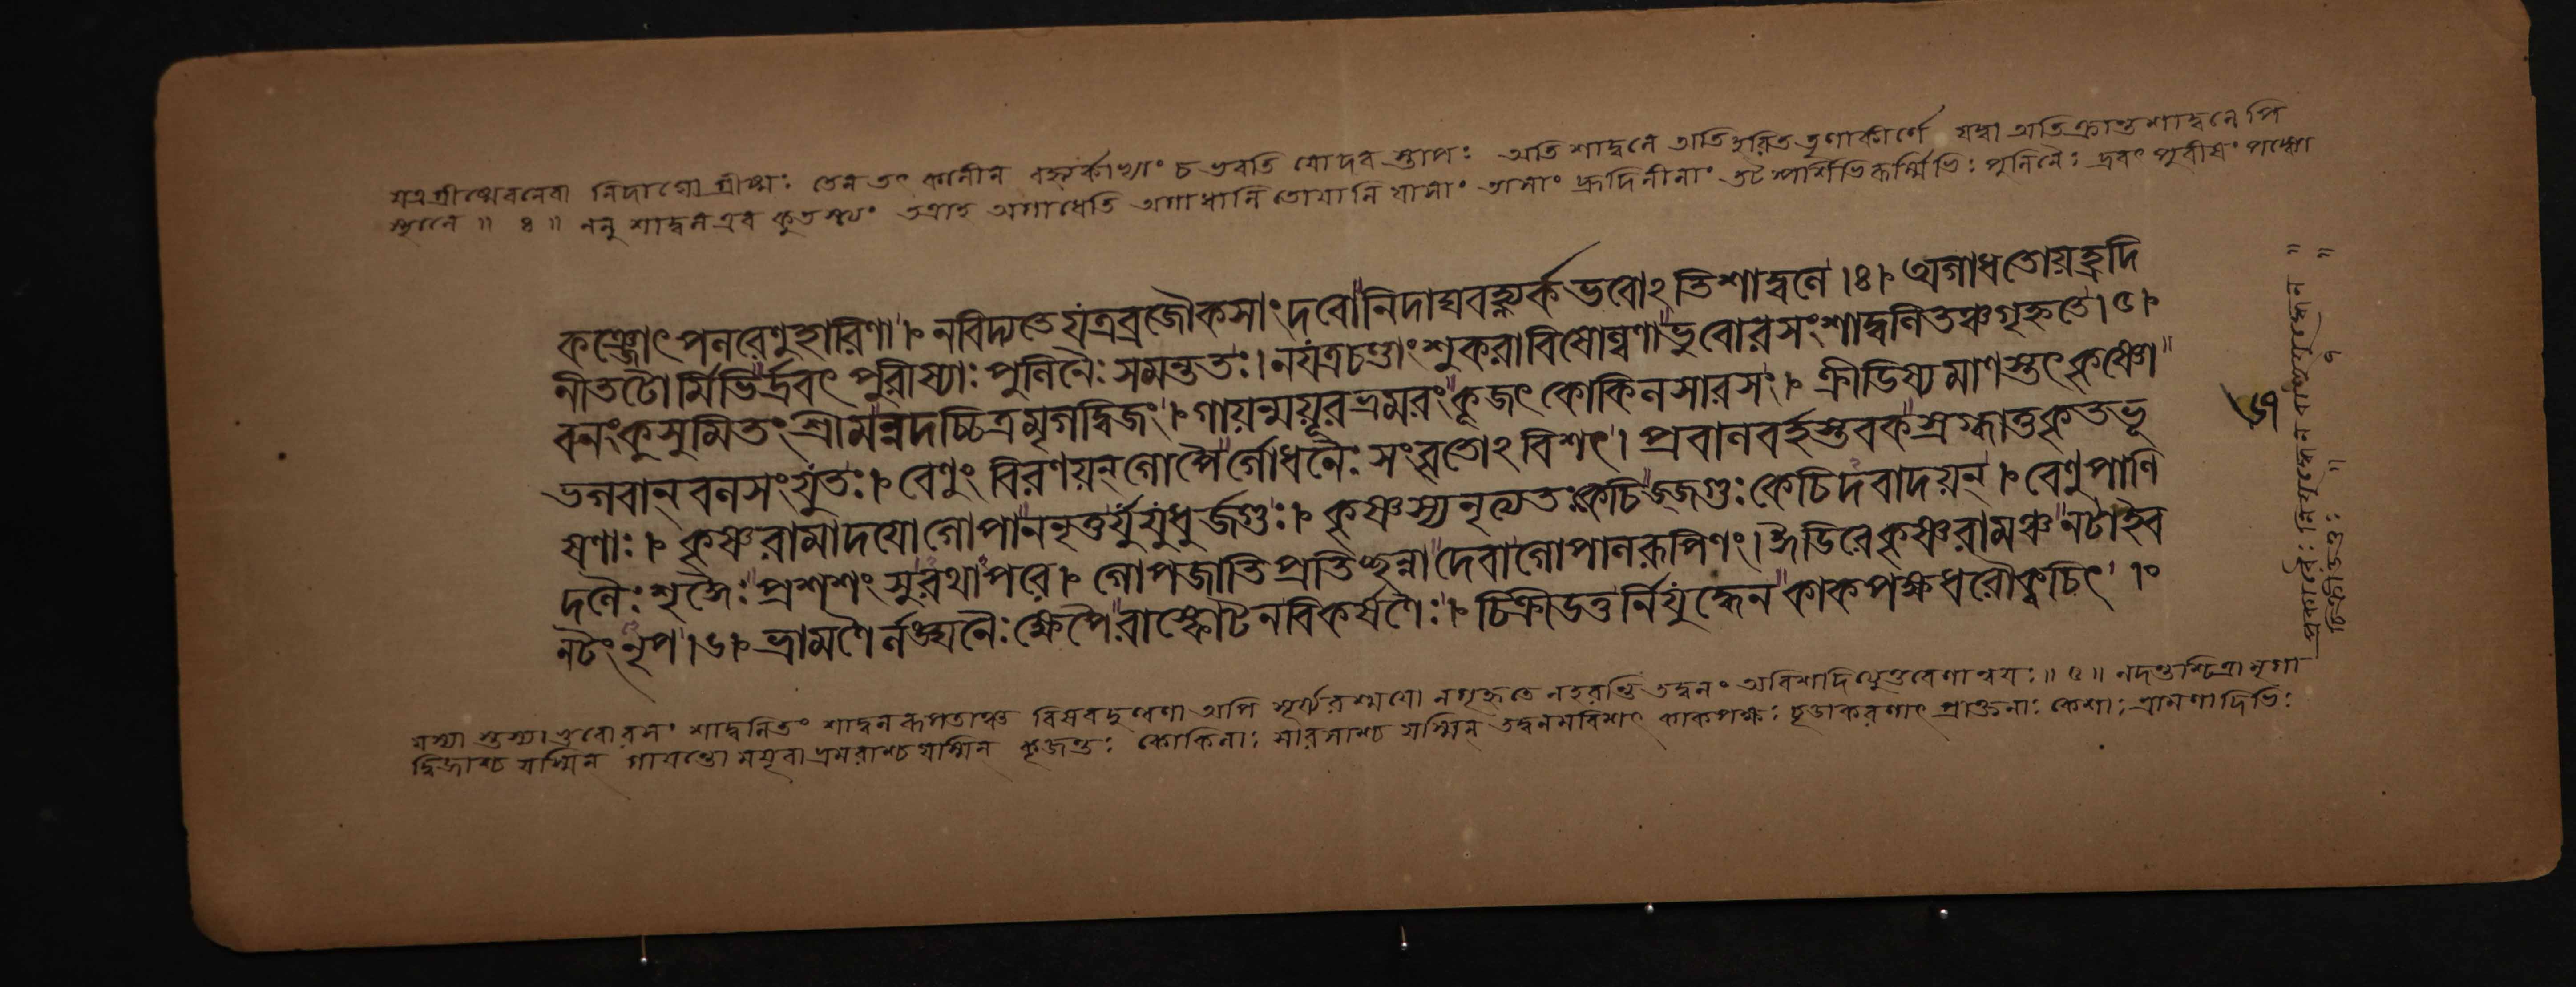 যত্র গ্রীষ্মেবনেবা নিদাঘো গ্রীষ্মঃ তেন তৎ কালীন বহ্ন্যর্কাভ্যাং চ ভবতি যোদব স্তাপঃ অতি শাদ্বলে অতিহরিত তৃণাকীর্ণে যদ্বা অতিক্রান্ত শাদ্বলেপি
স্থলে ॥ ৪ ॥ ননু শাদ্বল এব কুত তত্রাহ অগাধেতি অগাধানি তোযানি যাসাং তাসাং হ্রদিনীনাং তটস্পর্শিভিরূর্ম্মিভিঃ পুলিনৈঃ দ্রবৎ পুরীষং
কঞ্জোৎপলরেণুহারিণা । নবিদ্যতেযত্রব্রজৌকসাংদবোনিদাঘবহ্ন্যর্কভবোঽতিশাদ্বলে ।৪। অগাধতোয়হ্রদি
নীতটোর্মিভির্দ্রবৎ পুরীষ্যাঃ পুলিনৈঃ সমন্ততঃ। নযত্রচণ্ডাংশুকরাবিষোল্বণাভুবোরসংশাদ্বলিতঞ্চগৃহ্নতে।৫।
বনংকুসুমিতংশ্রীমন্নদচ্চিত্রমৃগদ্বিজং । গায়ন্ময়ূরভ্রমরংকূজৎ কোকিলসারসং । ক্রীডিষ্যমাণস্তৎকৃষ্ণো
ভগবান্ বলসংযুতঃ । বেণুং বিরণয়ন্গোপৈর্গোধনৈঃ সংবৃতোঽবিশৎ । প্রবালবর্হস্তবকস্রগ্ধাতুকৃতভূ
ষণাঃ । কৃষ্ণরামাদযোগোপাননৃতুর্যুযুধুর্জগুঃ । কৃষ্ণস্যনৃত্যতঃকেচিজ্জগুঃকেচিদবাদয়ন্ । বেণুপাণি
দলৈঃশৃঙ্গৈঃ প্রশশংসুরথাপরে । গোপজাতিপ্রতিচ্ছন্নাদেবাগোপালরূপিণং। ঈডিরেকৃষ্ণরামঞ্চনটাইব
নটং নৃপ ।৬। ভ্রামণৈর্লঙ্ঘনৈঃক্ষেপৈরাস্ফোটনবিকর্ষণৈঃ । চিক্রীডতুর্নিযুদ্ধেনকাকপক্ষধরৌক্বচিৎ ।
ভুবোরসং শাদ্বলিতং শাদ্বল রূপতাঞ্চ বিষবদুল্বণা অপি সূর্য্যরশ্ময়ো নগৃহ্নতে নহরন্তি তদ্বনং অবিশদিত্যুত্তরেণান্বযঃ ॥ ৫ ॥ নদন্তশ্চিত্রা মৃগা
দ্বিজাশ্চ যস্মিন্ গাযন্তো মযূরাভ্রমরাশ্চ যস্মিন্ কূজন্তঃ কোকিলাঃ সারসাশ্চ যস্মিন্ তদ্বনমবিশৎ কাকপক্ষঃ চূডাকরণাৎ প্রাক্তনাঃ কেশাঃ ভ্রামণাদিভিঃ
প্রকারৈঃ নিযুদ্ধেন বাহুযুদ্ধেন ॥
চিক্রীডতুঃ ॥ ৭ ॥